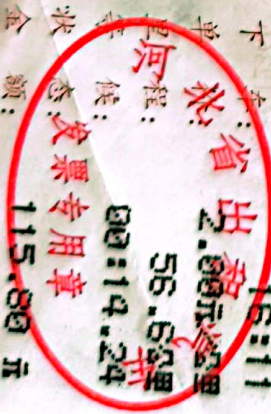 下车: 16:11
单 2.00元/公里
程: 56.6公里
等候: 00:14.24
状态:
金额: 115.80元
河北省出租汽
发票专用章